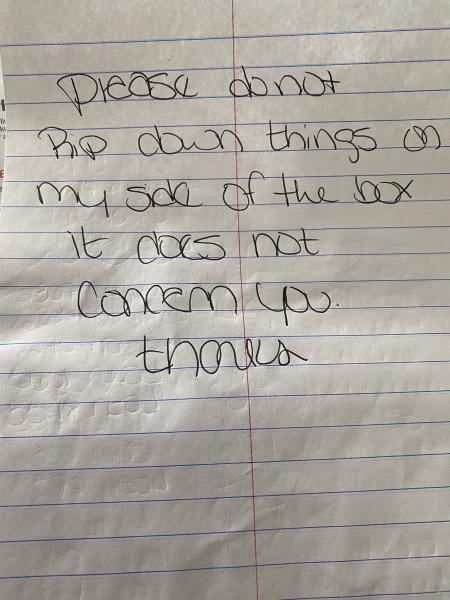 Please do not
Rip down things on
my side of the box
it does not
Concern you.
thanks